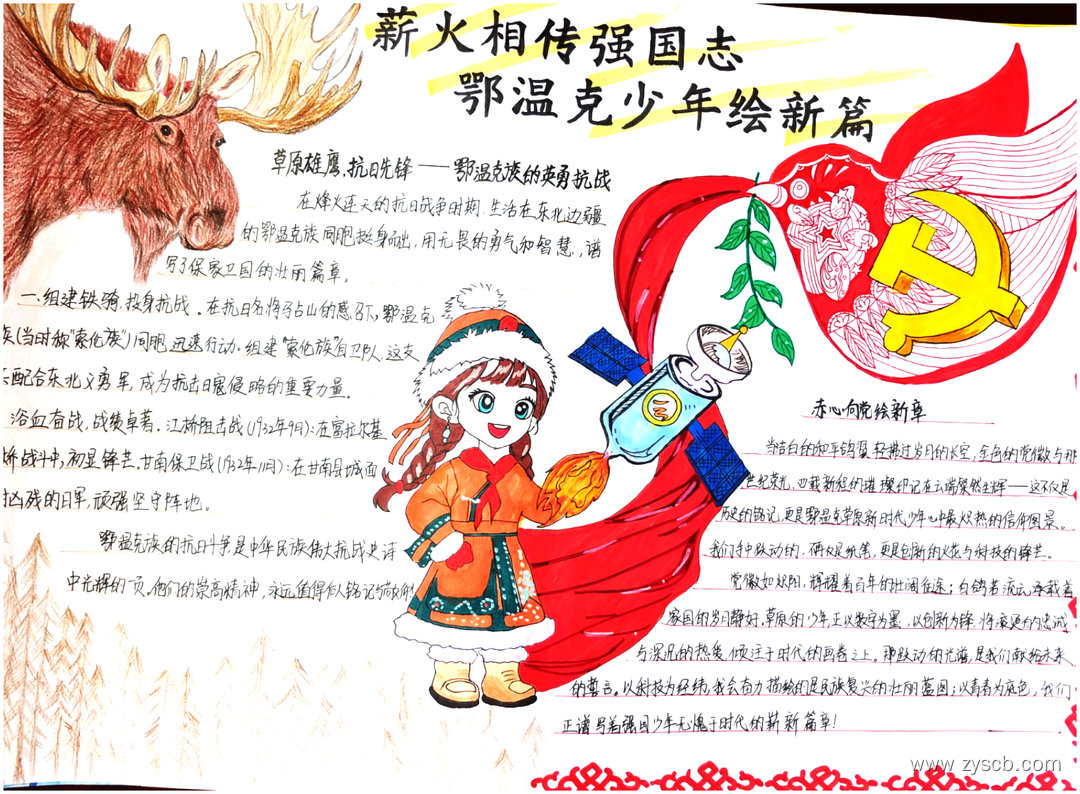 薪火相传强国志
鄂温克少年绘新篇
草原雄鹰、抗日先锋——鄂温克族的英勇抗战
在烽火连天的抗日战争时期,生活在东北边疆
的鄂温克族同胞挺身而出,用无畏的勇气和智慧,谱
写了保家卫国的壮丽篇章。
一、组建铁骑,投身抗战。在抗日名将马占山的感召下,鄂温克
族(当时称"索伦族")同胞迅速行动。组建"索伦族"自卫队,这支
配合东北义勇军,成为抗击日寇侵略的重要力量。
浴血奋战,战绩卓著。江桥阻击战(1932年9月):在富拉尔基
桥战斗中,初显锋芒。甘南保卫战(1932年11月):在甘南县城面
对凶残的日军,顽强坚守阵地。
鄂温克族的抗日斗争是中华民族伟大抗战史诗
中光辉的一页,他们的崇高精神,永远值得铭记
赤心向党绘新章
当洁白的和平鸽翼轻拂过岁月的长空,金色的党徽与那
世纪荣光,四载新程的璀璨印记在云端粲然生辉——这不仅是
历史的铭记,更是鄂温克草原新时代少年心中最炽热的信仰图景。
我们手中跃动的,不仅是纸笔,更是创新的火花与科技的锋芒。
党徽如炽阳,辉耀着百年的壮阔征途;白鸽若流云,承载着
家国的岁月静好。草原的少年,正以数字为墨,以创新为锋,将滚烫的忠诚
与深沉的热爱,倾注于时代的画卷之上。那跃动的光谱,是我们献给未来
的誓言。以科技为经纬,我会奋力描绘的是民族复兴的壮丽蓝图;以青春为底色,我们
正谱写着强国少年无愧于时代的崭新篇章!
www.zyscb.com